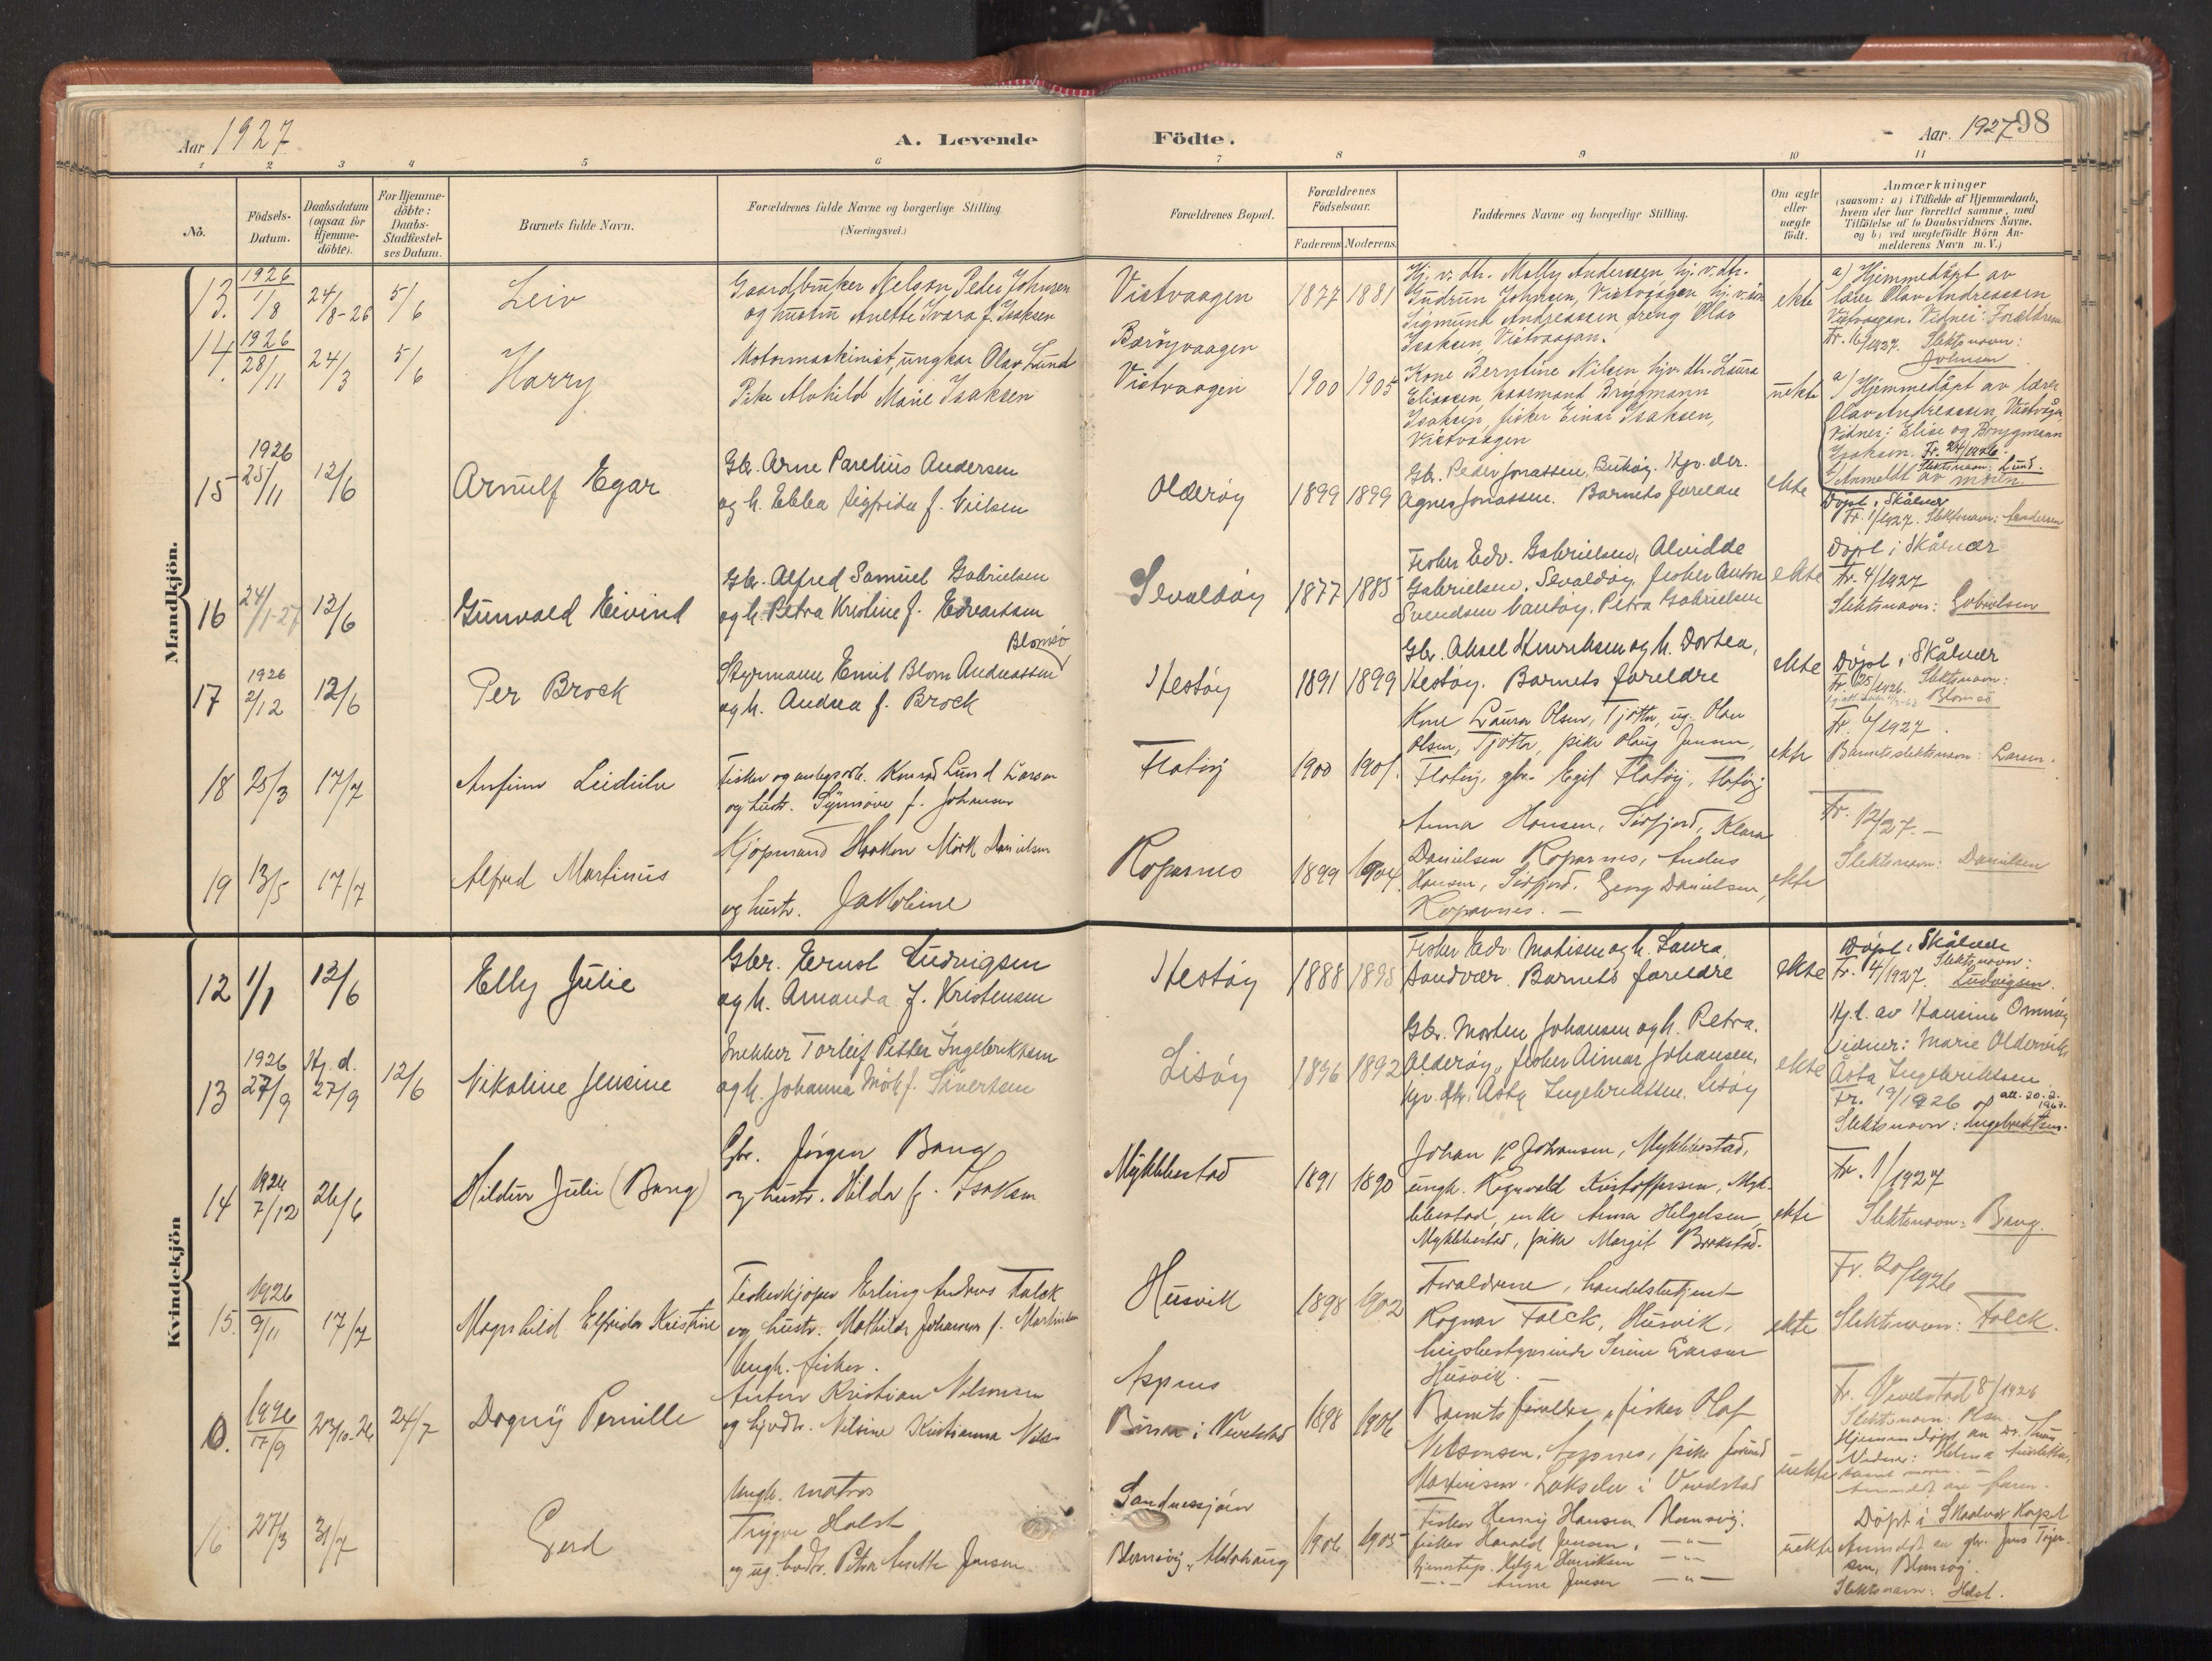 Aar 1927
A. Levende
Födte.
Aar. 1927 98
1 2 3 4 5 6 7 8 9 10 11
No.
Födsels-
Datum.
Daabsdatum
(ogsaa for
Hjemme-
döbte).
For Hjemme-
döbte:
Daabs-
Stadfæstel-
ses Datum.
Barnets fulde Navn.
Forældrenes fulde Navne og borgerlige Stilling
(Næringsvei.)
Forældrenes Bopæl.
Forældrenes
Födselsaar.
Faderens Moderens
Faddernes Navne og borgerlige Stilling.
Om ægte
eller
uægte
födt.
Anmærkninger
(saasom: a) i Tilfælde af Hjemmedaab,
hvem der har forrettet samme, med
Tilföielse af to Daabsvidners Navne.
og b) ved uægtefödte Börn An-
melderens Navn m. V.)
Mandkjön.
13. 1926 1/8 24/8-26 5/6
Leiv
Gaardbruker Nelson Peder Johnsen
og hustru Anette Ivara f. Isaksen
Vistvaagen
1877 1881
Hj. v. dtr. Molly Andersen hj. v. dtr.
Gudrun Johnsen, Vistvaagen hj. v. søn
Sigmund Andreassen dreng Olav
Isaksen Vistvaagen.
ekte
a) Hjemmedøpt av
lærer Olav Andreassen
Vistvaagen. Vidner: Forældrene
Fr. 6/1927. Slektsnavn:
Johnsen
14. 1926 28/11 24/3 5/6
Harry
Motormaskinist, ungkar Olav Lund
Pike Alvhild Marie Isaksen
Barøyvaagen
Vistvaagen
1900 1905
Kone Berntine Nilsen hjv. dtr. Laura
Eliassen, Brygmann
Isaksen, fisker Einar Isaksen,
Vistvaagen
uekte
a) Hjemmedøpt av lærer
Olav Andreassen, Vistvågen
Vidner: Elise og Brygmann
Isaksen. Fr. 24/1926.
Slektsnavn: Lund.
b) Anmeldt av moren
15 1926 25/11 12/6
Arnulf Egar
Gbr. Arne Parelius Andersen
og h. Ebba Sigfrida f. Nielsen
Olderøy
1899 1899
Gbr. Peder Jonassen, Buköy. Hjv. dtr.
Agnes Jonassen. Barnets foreldre
ekte
Døpt i Skålvær
Fr. 1/1927. Slektsnavn: Andersen
16 24/1-27 12/6
Gunvald Eivind
Gbr. Alfred Samuel Gabrielsen
og h. Petra Kristine f. Edvardsen
Sevaldøy
1877 1885
Fisker Edv. Gabrielsen, Alvidde
Gabrielsen, Sevaldøy, fisker Anton
Svendsen Petra Gabrielsen
ekte
Døpt i Skålvær
Fr. 4/1927
Slektsnavn: Gabrielsen
17 1926 2/12 12/6
Per Brock
Blomsø
Styrmann Emil Blom Andreassen
og h. Andrea f. Brock
Hestøy
1891 1899
Gbr. Aksel Henriksen og h. Dortea,
Hestøy. Barnets foreldre
ekte
Døpt i Skålvær
Fr. 25/1926. Slektsnavn:
Blomsø
18 25/3 17/7
Anfinn Leidulv
Fisker og anlegsarb. Konrad Lund Larsen
og hustr. Synnøve f. Johansen
Flatøy
1900 1901.
Kone Laura Olsen, Tjøtta, ug. Olav
Olsen, Tjøtta, pike Olaug Jensen,
Flatøy, gbr. Egil Flatøy, Flatøy
ekte
Fr. 6/1927.
Barnets slektsnavn: Larsen.
19 13/5 17/7
Alfred Martinus
Kjøpmand Haakon Mørk Danielsen
og hustr. Jakobine
Kopparnes
1899 1904.
Anna Hansen, Sørfjord, Klara
Danielsen Koparnes, Anders
Hansen, Sørfjord. Georg Danielsen,
Koparnes. —
ekte
Fr. 12/27. —
Slektsnavn: Danielsen
Kvindekjön
12 1/1 12/6
Elly Julie
Gbr. Ernst Ludvigsen
og h. Amanda f. Kristensen
Hestøy
1888 1895
Fisker Edv. Matisen og h. Laura,
Sandvær. Barnets foreldre
ekte
Døpt i Skålvær
Fr. 4/1927. Slektsnavn:
Ludvigsen.
13 1926 27/9 Hj. d. 27/9 12/6
Nikoline Jensine
Snekker Torleif Petter Ingebriktsen
og h. Johanna Mörk f. Sivertsen
Lisøy
1896 1892
Gbr. Morten Johansen og h. Petra.
Olderøy, fisker Aimar Johansen,
hjv. dtr. Åsta Ingebriktsen, Lisøy
ekte
Hj.d. av Hansine Omnøy
Vidner: Marie Oldervik,
Åsta Ingebriktsen
Fr. 19/1926 att. 20.2.1967.
Slektsnavn: Ingebriktsen.
14 1926 7/12 26/6
Hildur Julie (Bang)
Gbr. Jörgen Bang
og hustr. Hilda f. Isaksen
Mykklebostad
1891 1890
Johan P Johansen, Mykklebostad,
ungk. Ragnvald Kristoffersen, Myk-
klebostad, enke Anna Helgesen,
Mykklebostad, pike Margit Brækstad.
ekte
Fr. 1/1927
Slektsnavn: Bang.
15. 1926 9/11 17/7
Magnhild Elfrida Kristine
Fiskekjøper Erling Andreas Falck
og hustr. Mathilde Johanna f. Martinsen
Husvik
1898 1902
Foreldrene, handelsbetjent
Ragnar Falck, Husvik,
husbestyrerinde Serine Larsen
Husvik. —
ekte
Fr. 20/1926
Slektsnavn: Falck.
0. 1926 17/9 23/10-26 24/7
Dagny Pernille
Ungk. fisker.
Anton Kristian Nelsonsen
og hjvdtr. Nilsine Kristianna Nils
Aspnes
i Vevelstad
1898 1906
Barnets foreldre, fisker Olaf
Nelsonsen, Aspnes, pike
i Vevelstad
uekte
Fr. Vevelstad 8/1926
Slektsnavn: Olsen
Hjemmedøpt av
Vidner: Helma
Anmeldt av faren.
16 27/3 31/7
Gerd
Ungk. matros
Trygve Holst
og ug. Petra Anette Jensen
Sandnessjøen
Blomsøy, Alstahaug
1906 1905
Fisker Henry Hansen, Blomsøy.
fisker Harald Jensen, —"—
tjenestep. Helga Henriksen —"—
—"— Anna Jensen —"—
uekte
Døpt i Skaalvær Kapel
Anmeldt av gbr. Jens
sen, Blomsøy.
Slektsnavn: Holst.